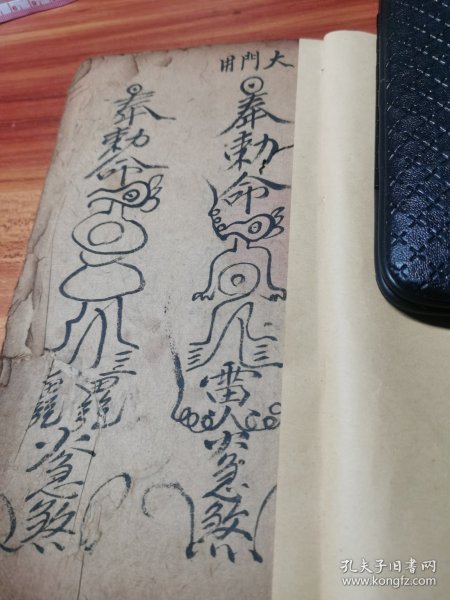 大門用
奉勅命
雷
火急煞
奉勅命
火急煞
孔夫子旧书网
www.kongfz.com